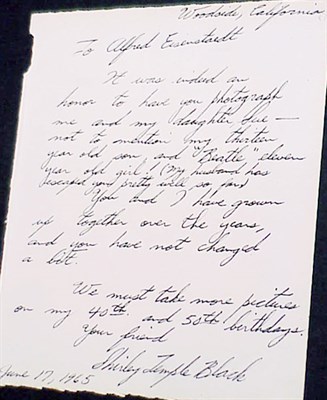 Woodside, California
To Alfred Eisenstaedt
It was indeed an
honor to have you photograph
me and my daughter Sue —
not to mention my thirteen
year old son, and "Beatle" eleven
year old girl! (My husband has
escaped you pretty well so far)
You and I have grown
up together over the years,
and you have not changed
a bit.
We must take more pictures
on my 40th and 50th birthdays.
Your friend
Shirley Temple Black
June 17, 1965